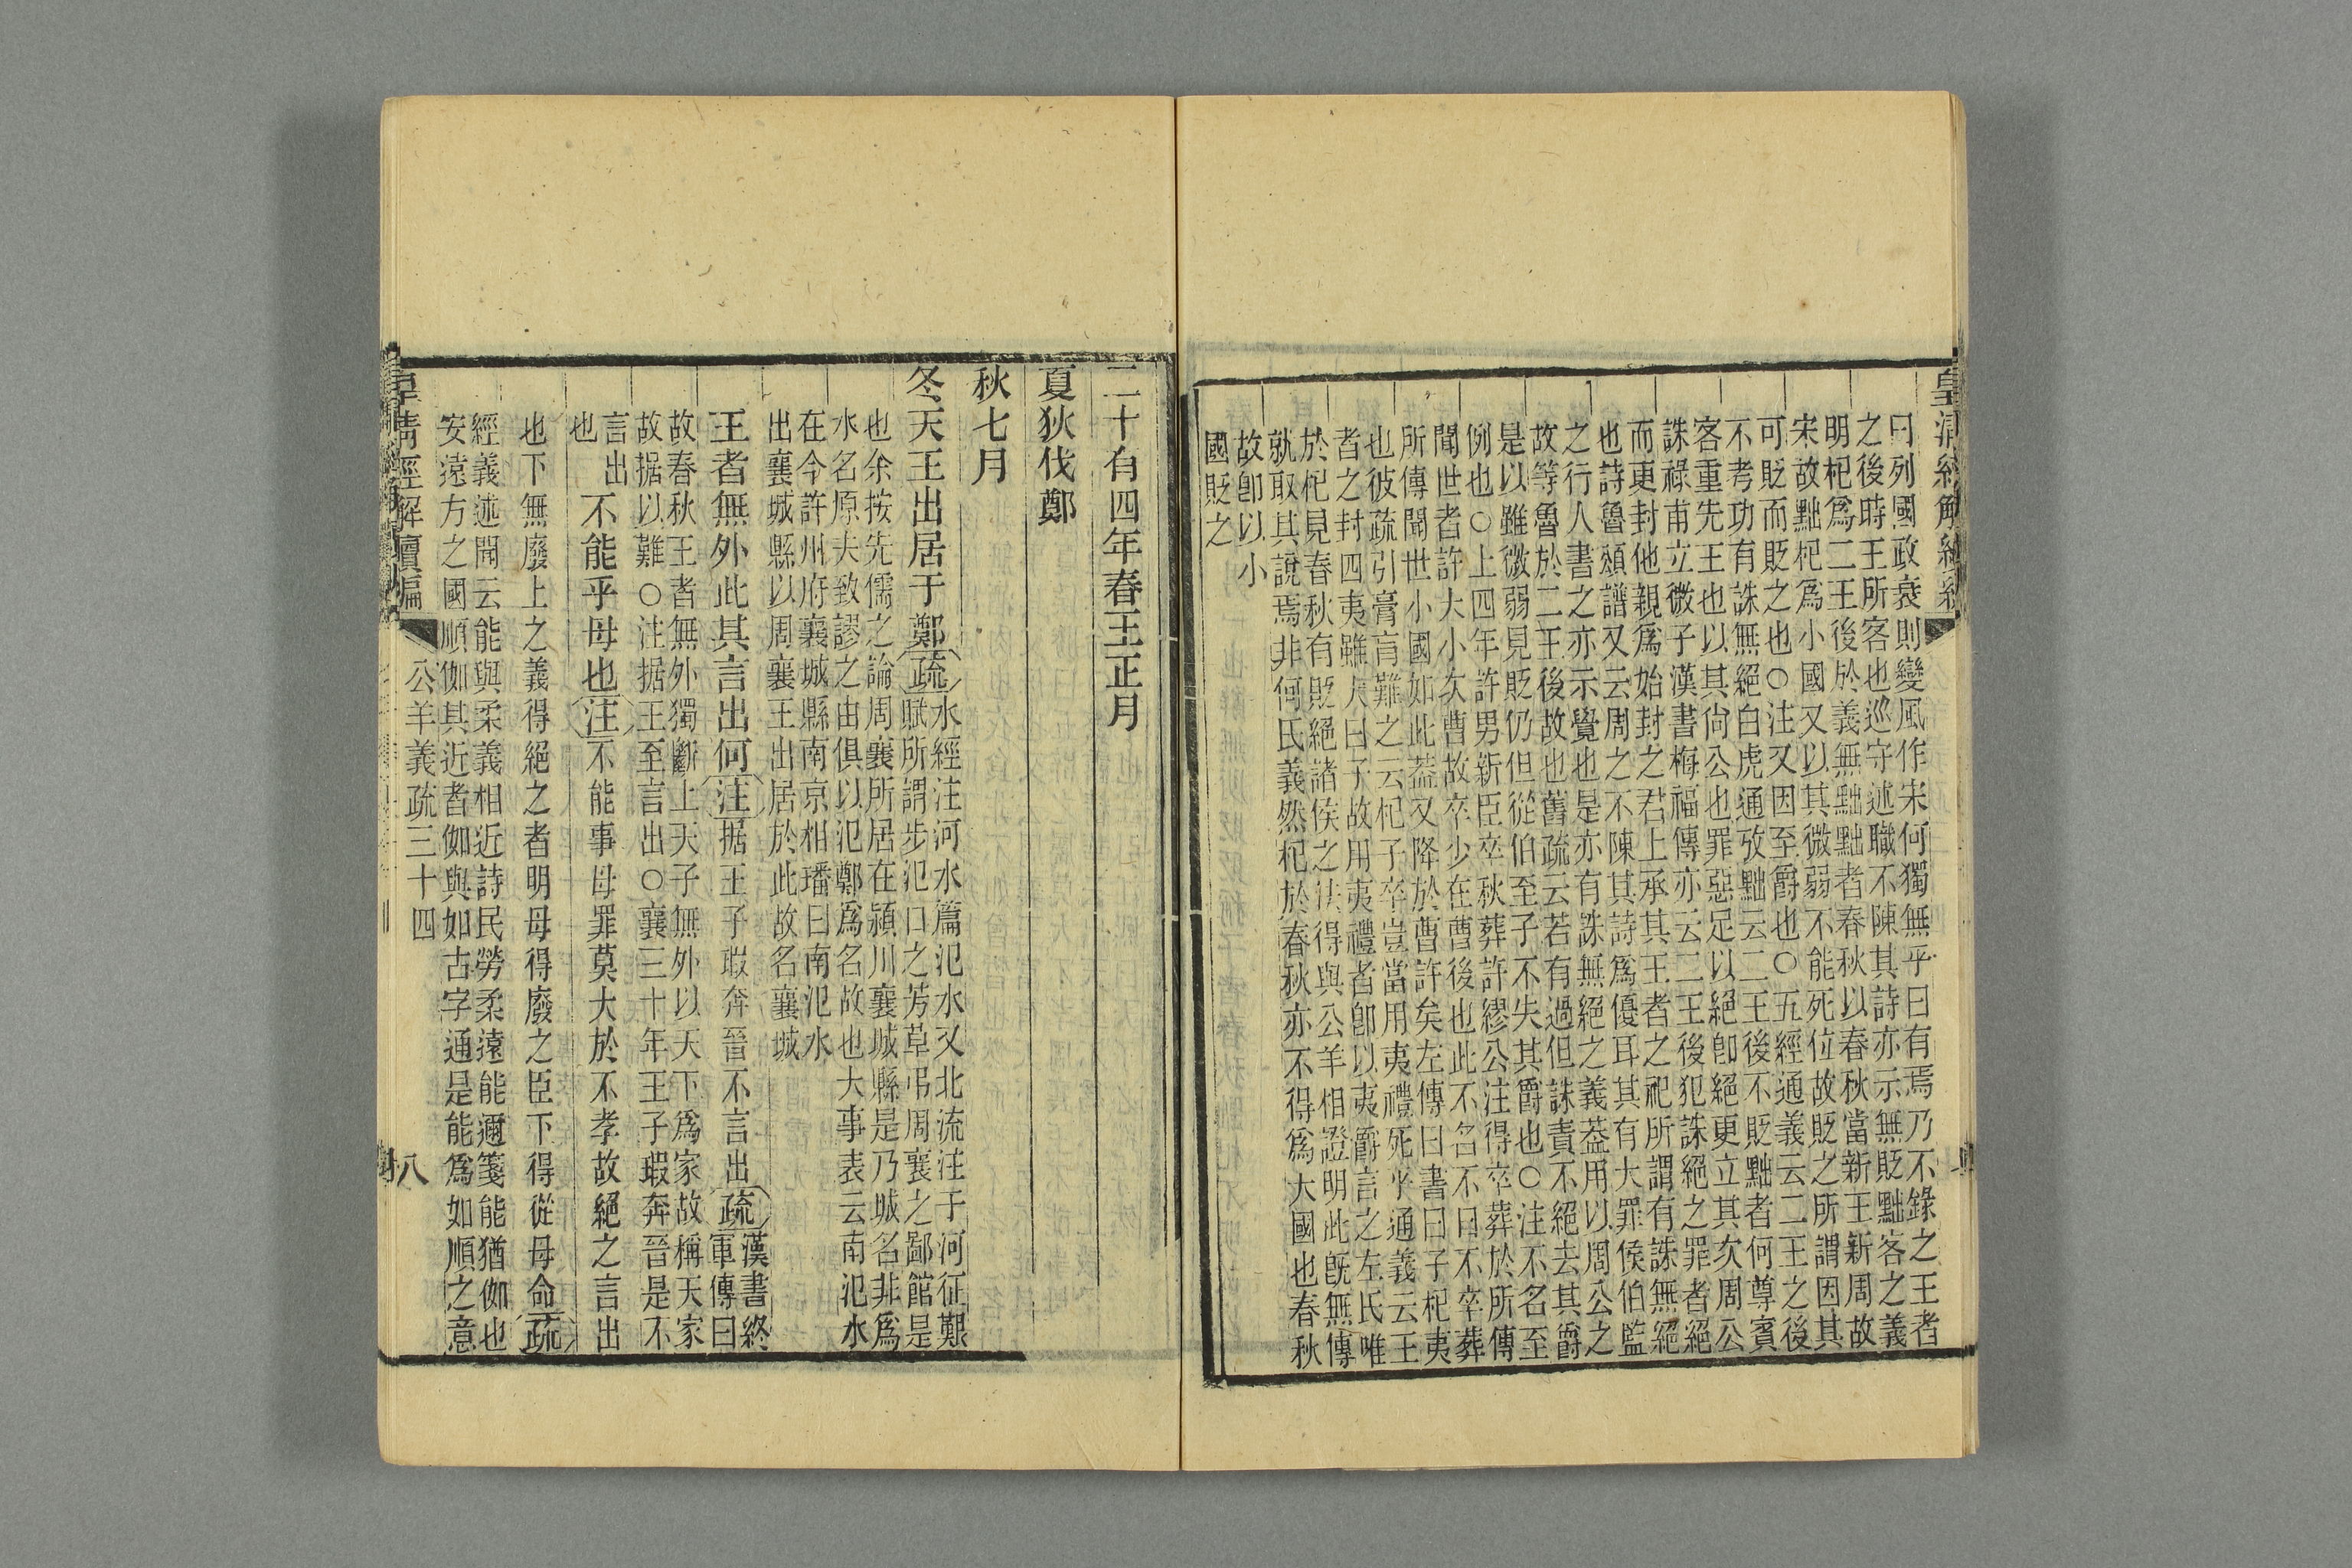 皇清經解續編
曰列國政衰則變風作宋何獨無乎曰有焉乃不錄之王者
之後時王所客也巡守述職不陳其詩亦示無貶黜客之義
明杞爲二王後於義無黜黜者春秋以春秋當新王新周故
宋故黜杞爲小國又以其微弱不能死位故貶之所謂因其
可貶而貶之也○注又因至爵也○五經通義云二王之後
不考功有誅無絕白虎通攷黜云二王後不貶黜者何尊賓
客重先王也以其尙公也罪惡足以絕卽絕更立其次周公
誅祿甫立微子漢書梅福傳亦云二王後犯誅絕之罪者絕
而更封他親爲始封之君上承其王者之祀所謂有誅無絕
也詩魯頌譜又云周之不陳其詩爲優耳其有大罪侯伯監
之行人書之亦示覺也是亦有誅無絕之義葢用以周公之
故等魯於二王後故也舊疏云若有過但誅責不絕去其爵
是以雖微弱見貶仍但從伯至子不失其爵也○注不名至
例也○上四年許男新臣卒秋葬許繆公注得卒葬於所傳
聞世者許大小次曹故卒少在曹後也此不名不日不卒葬
所傳聞世小國如此葢又降於曹許矣左傳曰書曰子杞夷
也彼疏引膏肓難之云杞子卒豈當用夷禮死乎通義云王
者之封四夷雖大曰子故用夷禮者卽以夷爵言之左氏唯
於杞見春秋有貶絕諸侯之法得與公羊相證明此旣無傳
就取其說焉非何氏義然杞於春秋亦不得爲大國也春秋
故卽以小
國貶之
二十有四年春王正月
夏狄伐鄭
秋七月
冬天王出居于鄭疏水經注河水篇氾水又北流注于河征艱
賦所謂步氾口之芳草弔周襄之鄙館是
也余按先儒之論周襄所居在潁川襄城縣是乃城名非爲
水名原夫致謬之由俱以氾鄭爲名故也大事表云南氾水
在今許州府襄城縣南京相璠曰南氾水
出襄城縣以周襄王出居於此故名襄城
王者無外此其言出何注据王子瑕奔晉不言出疏漢書終
軍傳曰
故春秋王者無外獨斷上天子無外以天下爲家故稱天家
故据以難○注据王至言出○襄三十年王子瑕奔晉是不
言出
也
不能乎母也注不能事母罪莫大於不孝故絕之言出
也下無廢上之義得絕之者明母得廢之臣下得從母命疏
經義述聞云能與柔義相近詩民勞柔遠能邇箋能猶伽也
安遠方之國順伽其近者伽與如古字通是能爲如順之意
皇清經解續編
公羊義疏三十四
八